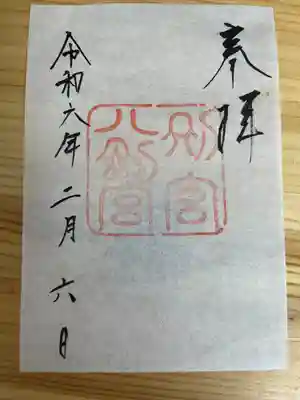 奉拝
別宮
八剣宮
令和六年二月六日